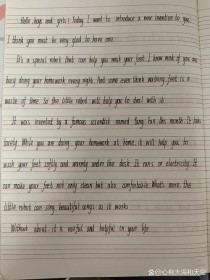 Hello, boys and girls! Today I want to introduce a new invention to you.
I think you must be very glad to have one.
It's a special robot that can help you wash your feet. I know most of you are
busy doing your homework every night. And some even think washing feet is a
waste of time. So the little robot will help you to deal with it.
It was invented by a famous scientist named Yang Fan this month. It looks
lovely. While you are doing your homework at home, it will help you to
wash your feet softly and warmly under the desk. It runs on electricity. It
can make your feet not only clean but also comfortable. What's more, the
little robot can sing beautiful songs as it works.
Without about, it is useful and helpful in your life.
@心有大海和天空